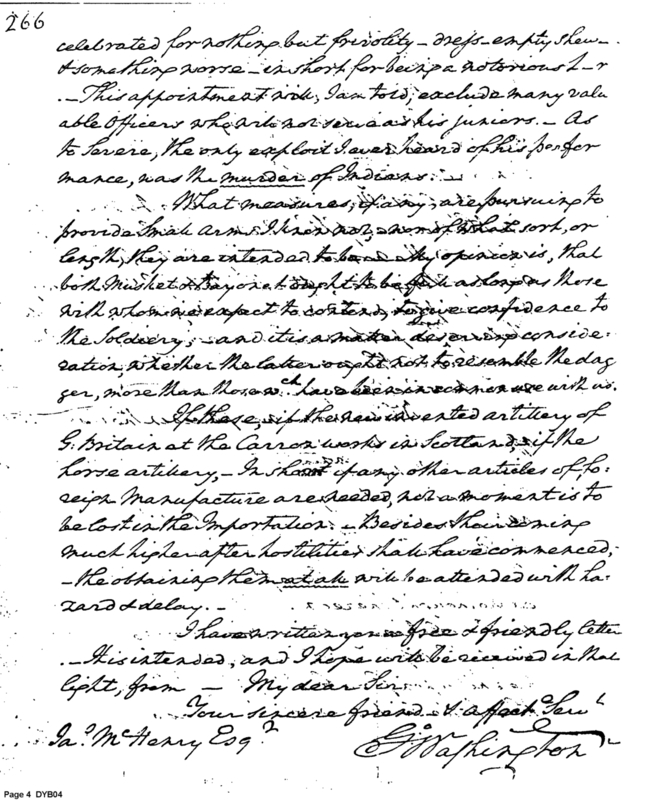 266
celebrated for nothing but frivolity – dress – empty shew –
& something worse – in short for being a notorious L–r
. – This appointment will, I am told, exclude many valu
able Officers who will not serve as his juniors. – As
to Severe, the only exploit I ever heard of his perfor
mance, was the murder of Indians.
What measures, if any, are pursuing to
provide Small Arms I know not, nor of what sort, or
length, they are intended to be – My opinion is, that
both Musket & Bayonet ought to be full as long as those
with whom we expect to contend, to give confidence to
the Soldiery; – and it is a matter deserving conside:
ration, whether the latter ought not to resemble the dag
ger, more than those wch. have been in common use with us.
If these, if the new invented artillery of
G: Britain at the Carron works in Scotland, if the
horse artillery, – In short if any other articles of fo:
reign Manufacture are needed, not a moment is to
be lost in the Importation. – Besides their coming
much higher after hostilities shall have commenced;
– the obtaining them at all will be attended with ha:
zard & delay. –
I have written you a free & friendly letter
. – It is intended, and I hope will be received in that
light, from – My dear Sir
Your sincere friend & affecte. Servt
Jas. McHenry Esqr.
Go: Washington
Page 4 DYB04